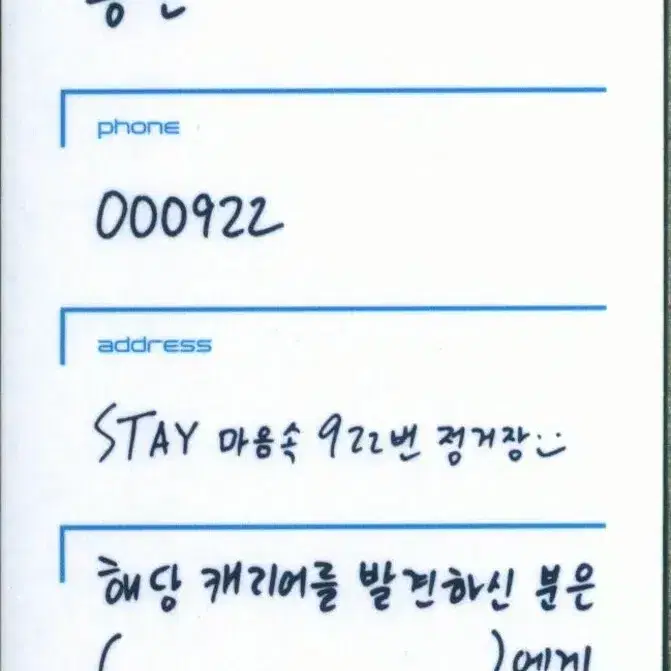 phone
000922
address
STAY 마음속 922번 정거장 :)
해당 캐리어를 발견하신 분은
( )에게